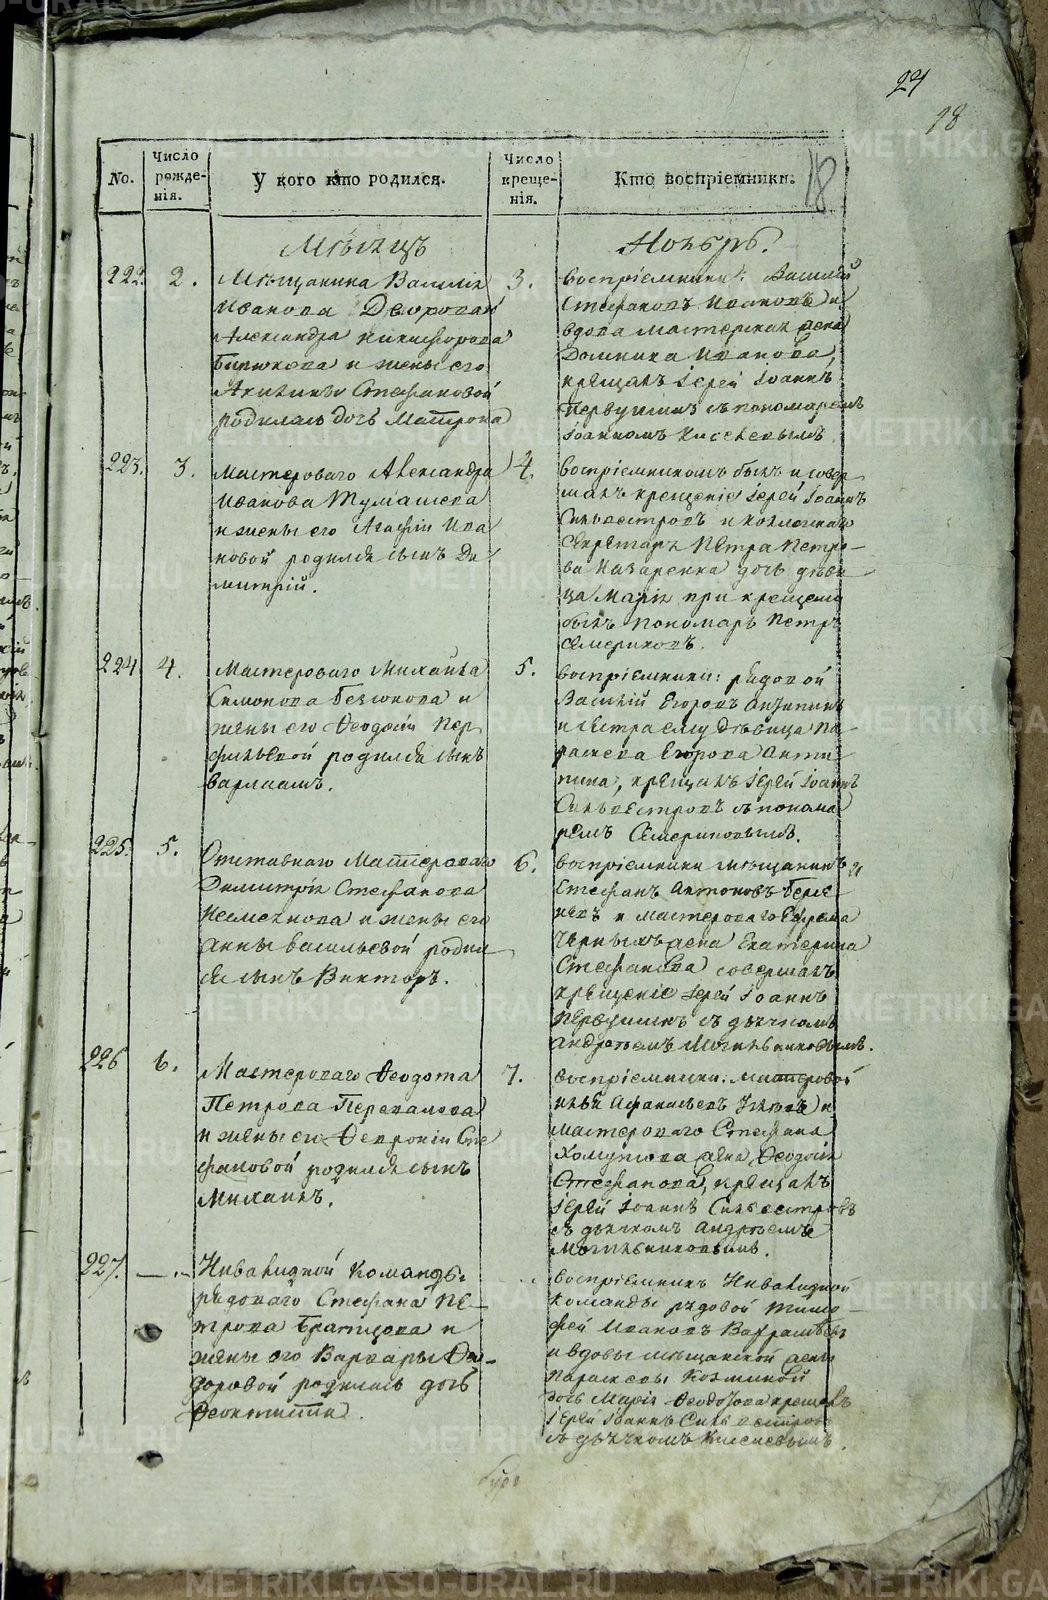 24
18
18
No.
Число
рожде-
нія.
У кого кто родился.
Число
креще-
нія.
Кто воспріемники.
Мѣсяцъ
Ноябрь.
222. 2.
Мѣщанина Василія
Иванова
Александра Никифорова
Бирюкова и жены его
Стефановой
родилась дочь Матрона
3.
воспріемники: Василій
Стефановъ Ивановъ и
вдова мастерская жена
Домника Иванова,
крещалъ Іерей Іоаннъ
Первушинъ съ пономаремъ
Іоанномъ Киселевымъ.
223. 3.
Мастероваго Александра
Иванова Тумашева
и жены его Агафіи Ива
новой родился сынъ Ди-
митрій.
4.
воспріемникомъ былъ и совер
шалъ крещеніе Іерей Іоаннъ
Сильвестровъ и
Секретаря Петра Петро-
ва Назаренка дочь дѣви
ца Марія при крещеніи
былъ пономарь Петръ
Семериковъ.
224 4.
Мастероваго Михайла
Симонова и
жены его Ѳеодосіи Пер
фильевой родился сынъ
Варлаамъ.
5.
воспріемники: рядовой
Василій Егоровъ Антипинъ
и сестра ему дѣвица Па-
раскева Егорова Анти
пина, крещалъ Іерей Іоаннъ
Сильвестровъ съ понама
ремъ Семериковымъ.
225. 5.
Отставнаго Мастероваго
Димитрія Стефанова
и жены его
Анны Васильевой родил
ся сынъ Викторъ.
6.
воспріемники мѣщанинъ
Стефанъ Антоновъ
и мастероваго Ефрема
Черныхъ жена Екатерина
Стефанова совершалъ
крещеніе Іерей Іоаннъ
Первушинъ съ дьячкомъ
Андреемъ Могильниковымъ.
226 6.
Мастероваго Ѳеодота
Петрова Перевалова
и жены его Ѳевроніи Сте
фановой родился сынъ
Михаилъ.
7.
воспріемники: мастеровой
Илья Афанасьевъ и
мастероваго Стефана
Хомутова жена Ѳеодосія
Стефанова, крещалъ
Іерей Іоаннъ Сильвестровъ
съ дьячкомъ Андреемъ
Могильниковымъ.
227. — . -
Инвалидной команды
рядоваго Стефана Пе-
трова Братцова и
жены его Варвары Ѳео-
доровой родилась дочь
Ѳеоктиста.
воспріемникъ Инвалидной
команды рядовой Тимо-
фей Ивановъ
и вдовы мѣщанской жены
Параскевы Козминой
дочь Марія Ѳеодотова крещалъ
Іерей Іоаннъ Сильвестровъ
съ дьячкомъ Киселевымъ.
METRIKI.GASO-URAL.RU